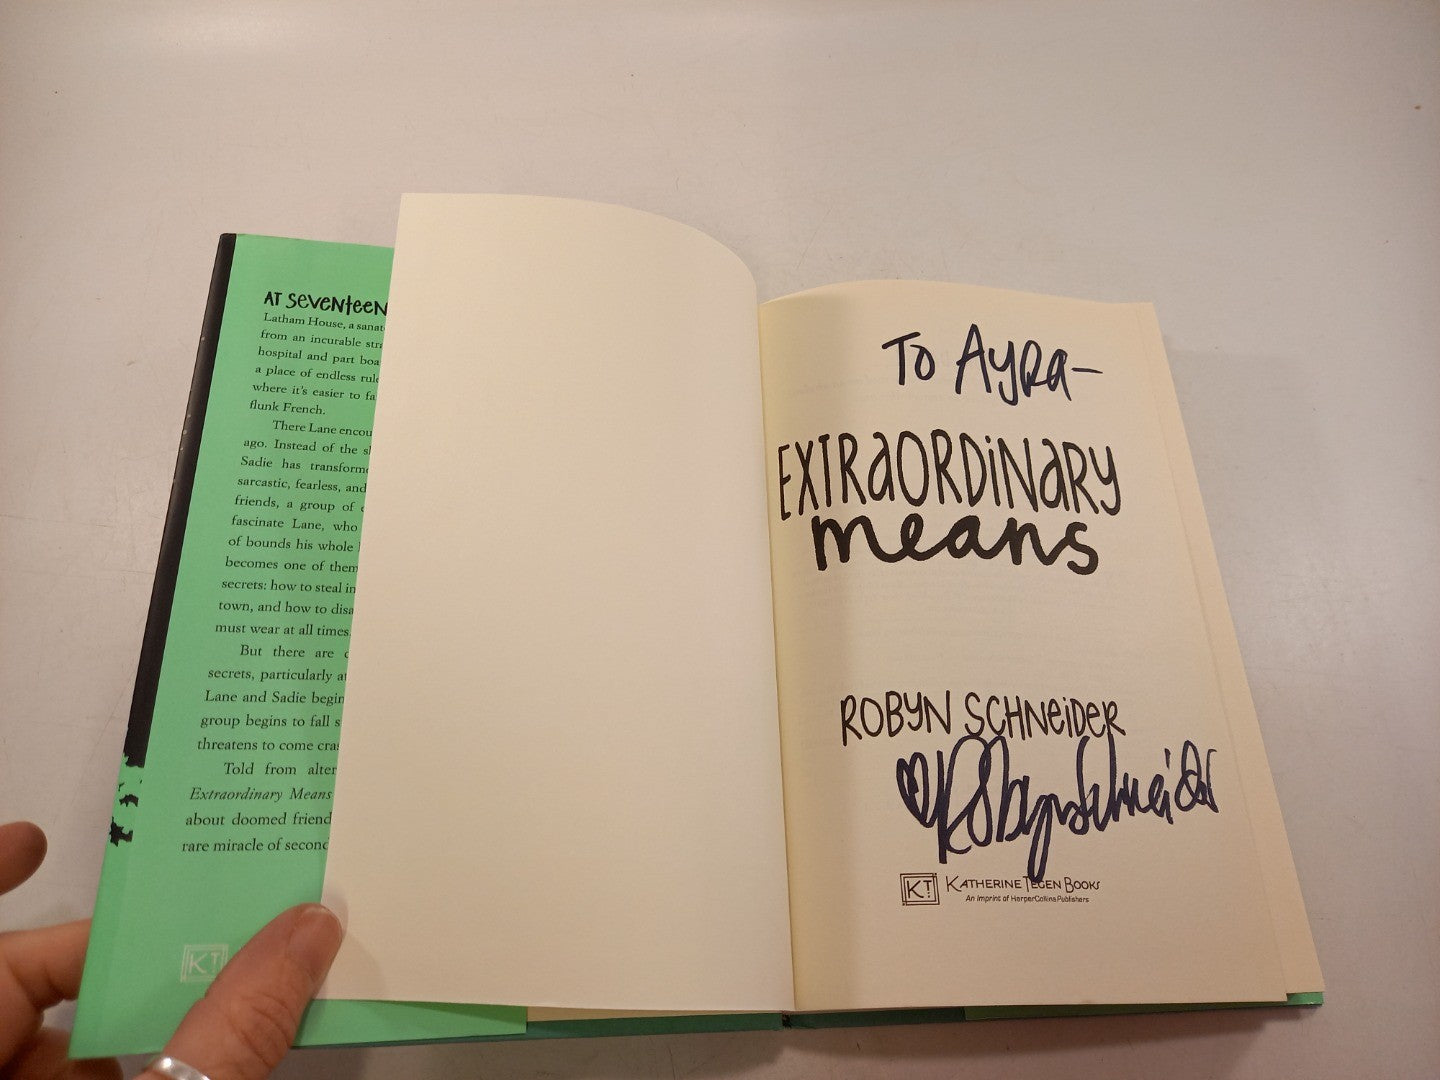 AT SEVENTEEN
Latham House, a
from an incurable
hospital and part
a place of endless
where it's easier to
flunk French.
There Lane
ago. Instead of the
Sadie has
sarcastic, fearless, and
friends, a group of
fascinate Lane, who
of bounds his whole
becomes one of them
secrets: how to steal
town, and how to
must wear at all times.
But there are
secrets, particularly
Lane and Sadie
group begins to fall
threatens to come
Told from
Extraordinary Means
about doomed
rare miracle of
KT
To Ayra-
EXTRAORDINARY
means
ROBYN SCHNEIDER
♥ Robyn Schneider
KT
KATHERINE TEGEN BOOKS
An Imprint of HarperCollinsPublishers